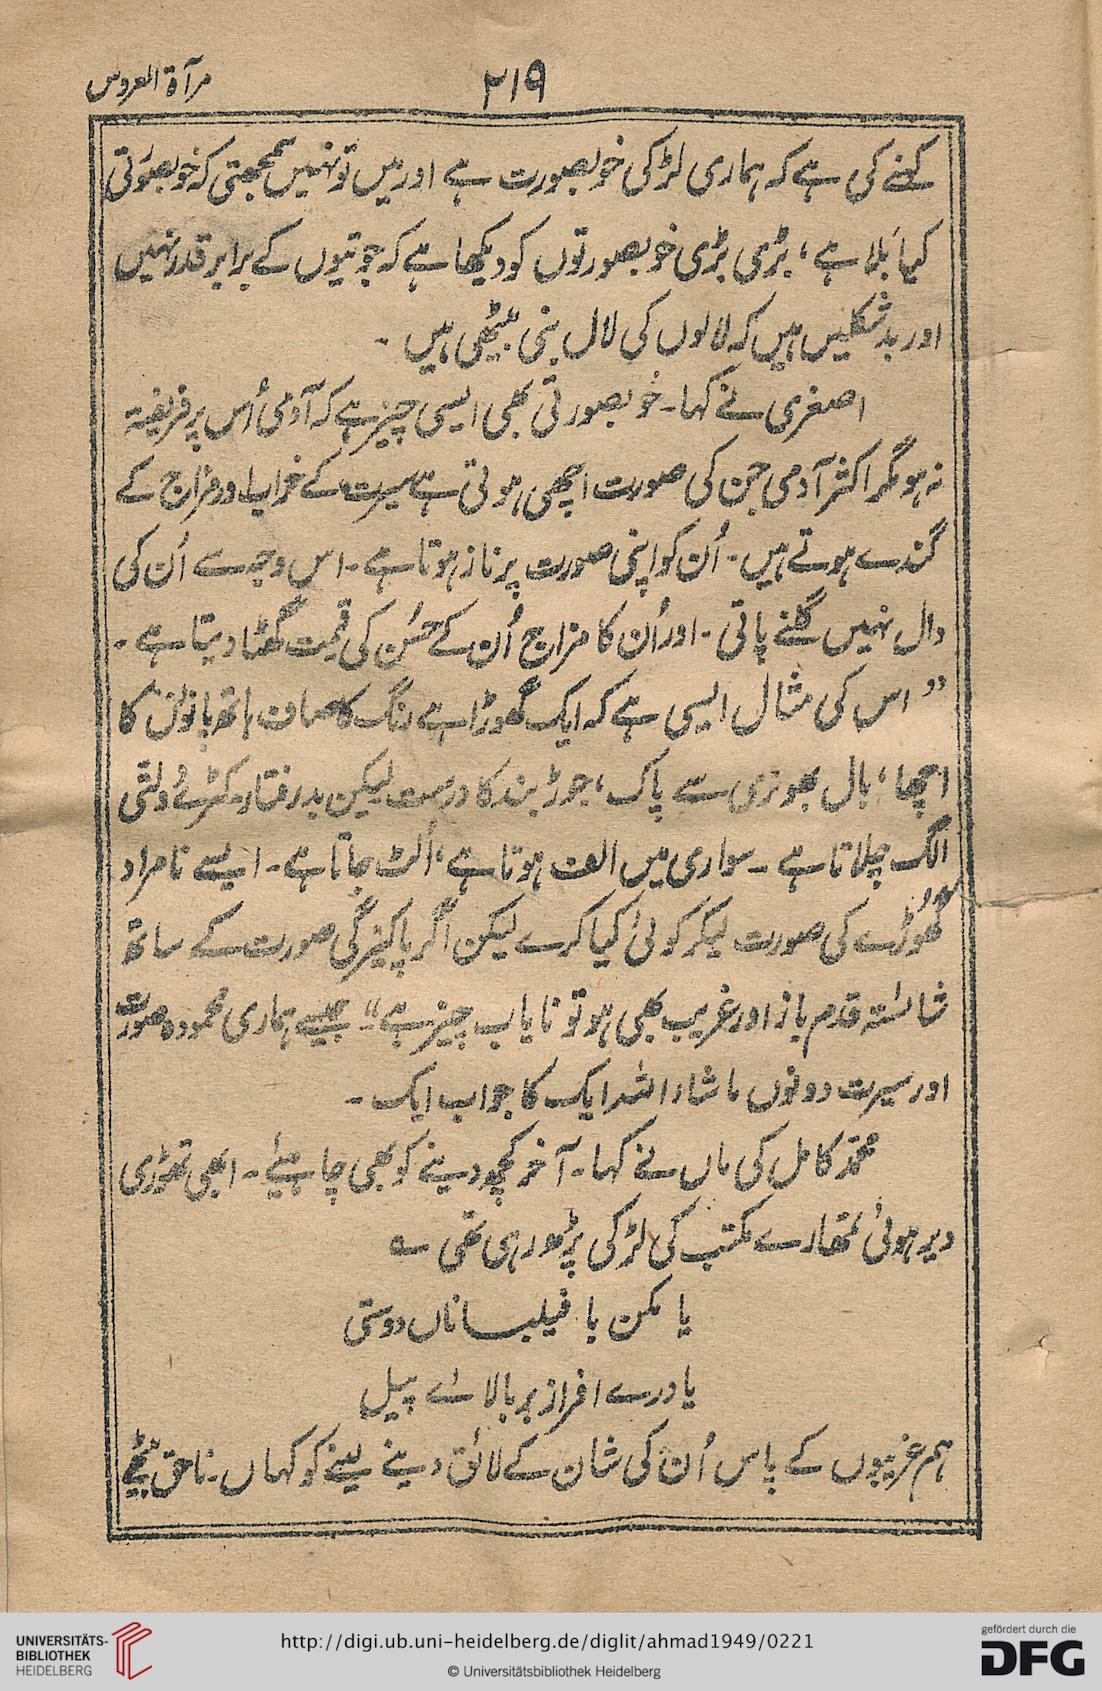 مرآۃ العروس
۲۱۹
کہنے کی ہے کہ ہماری لڑکی خوبصورت ہے اور میں تو نہیں سمجھتی کہ خوبصورتی
کیا بَلا ہے ، بڑی بڑی خوبصورتوں کو دیکھا ہے کہ جوتیوں کے برابر قدر نہیں
اور بدشکلیں ہیں کہ لالوں کی لال بنی بیٹھی ہیں ۔
اصغری نے کہا ۔ خوبصورتی بھی ایسی چیز ہے کہ آدمی اُس پر فریفتہ
نہ ہو مگر اکثر آدمی جن کی صورت اچھی ہوتی ہے سیرت کے خراب اور مزاج کے
گندے ہوتے ہیں ۔ اُن کو اپنی صورت پر ناز ہوتا ہے ۔ اس وجہ سے اُن کی
دال نہیں گلنے پاتی ۔ اور اُن کا مزاج اُن کے حُسن کی قیمت گھٹا دیتا ہے ۔
" اس کی مثال ایسی ہے کہ ایک گھوڑا ہے رنگ کا صاف ہاتھ پانوں کا
اچھا ، بال بھونری سے پاک ، جوڑ بند کا درست لیکن بدرفتار دولتّی
الگ چلاتا ہے ۔ سواری میں الف ہوتا ہے ، اُلٹ جاتا ہے ۔ ایسے نامراد
گھوڑے کی صورت لیکر کوئی کیا کرے لیکن اگر پاکیزگی صورت کے ساتھ
شائستہ قدم باز اور غریب بھی ہو تو نایاب چیز ہے " جیسے ہماری محمودہ صورت
اور سیرت دونوں ماشاء اللہ ایک کا جواب ایک ۔
محمّد کامل کی ماں نے کہا ۔ آخر کچھ دینے کو بھی چاہیئے ۔ ابھی تھوڑی
دیر ہوئی تمھارے مکتب کی لڑکی پڑھ رہی تھی ؎
یا مکن با فیلباناں دوستی
یا درے افراز بر بالائے پیل
ہم غریبوں کے پاس اُن کی شان کے لائق دینے لینے کو کہاں ۔ ناحق بیٹھے
UNIVERSITÄTS-
BIBLIOTHEK
HEIDELBERG
http://digi.ub.uni-heidelberg.de/diglit/ahmad1949/0221
© Universitätsbibliothek Heidelberg
gefördert durch die
DFG